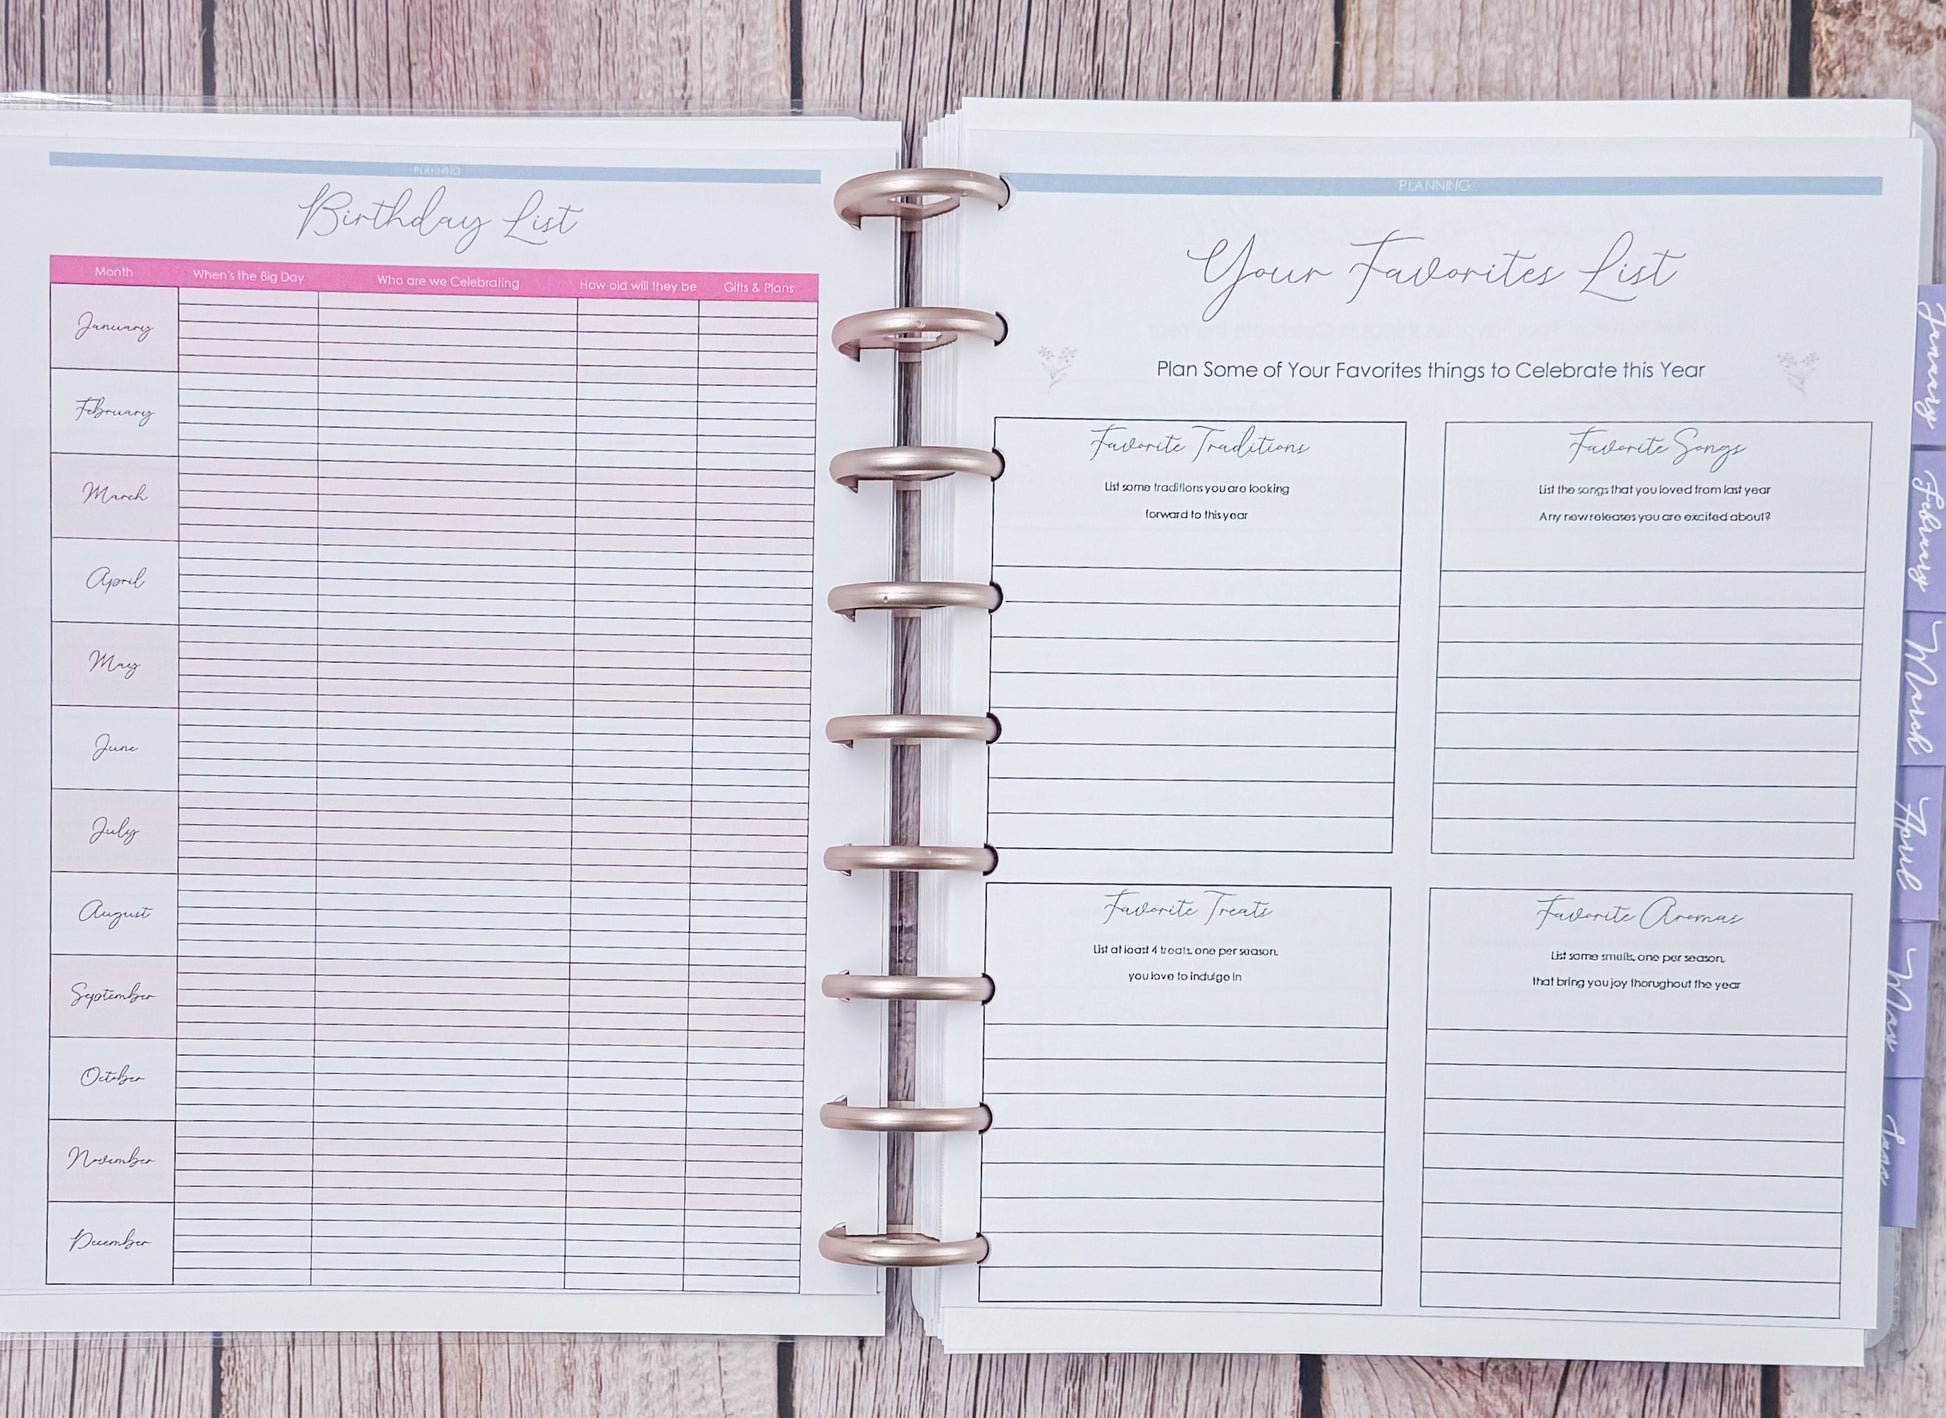 PLANNING
Birthday List
Month When's the Big Day Who are we Celebrating How old will they be Gifts & Plans
January
February
March
April
May
June
July
August
September
October
November
December
PLANNING
Your Favorites List
Plan Some of Your Favorites things to Celebrate this Year
Favorite Traditions
List some traditions you are looking
forward to this year
Favorite Songs
List the songs that you loved from last year
Any new releases you are excited about?
Favorite Treats
List at least 4 treats, one per season,
you love to indulge in
Favorite Aromas
List some smells, one per season,
that bring you joy thorughout the year
January
February
March
April
May
June